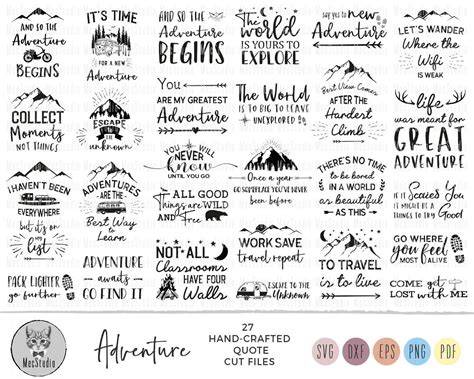 AND SO THE
Adventure
BEGINS
IT'S TIME
FOR A NEW
Adventure
AND SO THE
Adventure
BEGINS
The
world
IS YOURS TO
EXPLORE
say yes to new
Adventure
LET'S WANDER
Where the
Wifi
IS WEAK
COLLECT
Moments
NOT THINGS
ESCAPE
to the
unknown
You
ARE MY GREATEST
Adventure
The World
IS TO BIG TO LEAVE
UNEXPLORED
Best View Comes
AFTER THE
Hardest
Climb
life
was meant for
GREAT
ADVENTURE
I HAVEN'T BEEN
EVERYWHERE
but it's on
my
list
ADVENTURES
ARE THE
Best Way to
Learn
YOU WILL
Never
know
UNTIL YOU GO
Once a year
GO SOMEPLACE YOU'VE NEVER
BEEN BEFORE
THERE'S NO TIME
to be bored
IN A WORLD
as beautiful
AS THIS
if it Scares You
IT MIGHT BE A
THINGS TO TRY Good
ALL GOOD
Things are WILD
AND Free
PACK LIGHTER
go further
ADVENTURE
awaits
GO FIND IT
NOT ALL
Classrooms
HAVE FOUR
Walls
WORK SAVE
travel repeat
ESCAPE TO THE
Unknown
TO TRAVEL
is to live
GO WHERE
you feel
MOST ALIVE
COME get
LOST WITH ME
MecStudio
Adventure
27
HAND-CRAFTED
QUOTE
CUT FILES
SVG
DXF
EPS
PNG
PDF